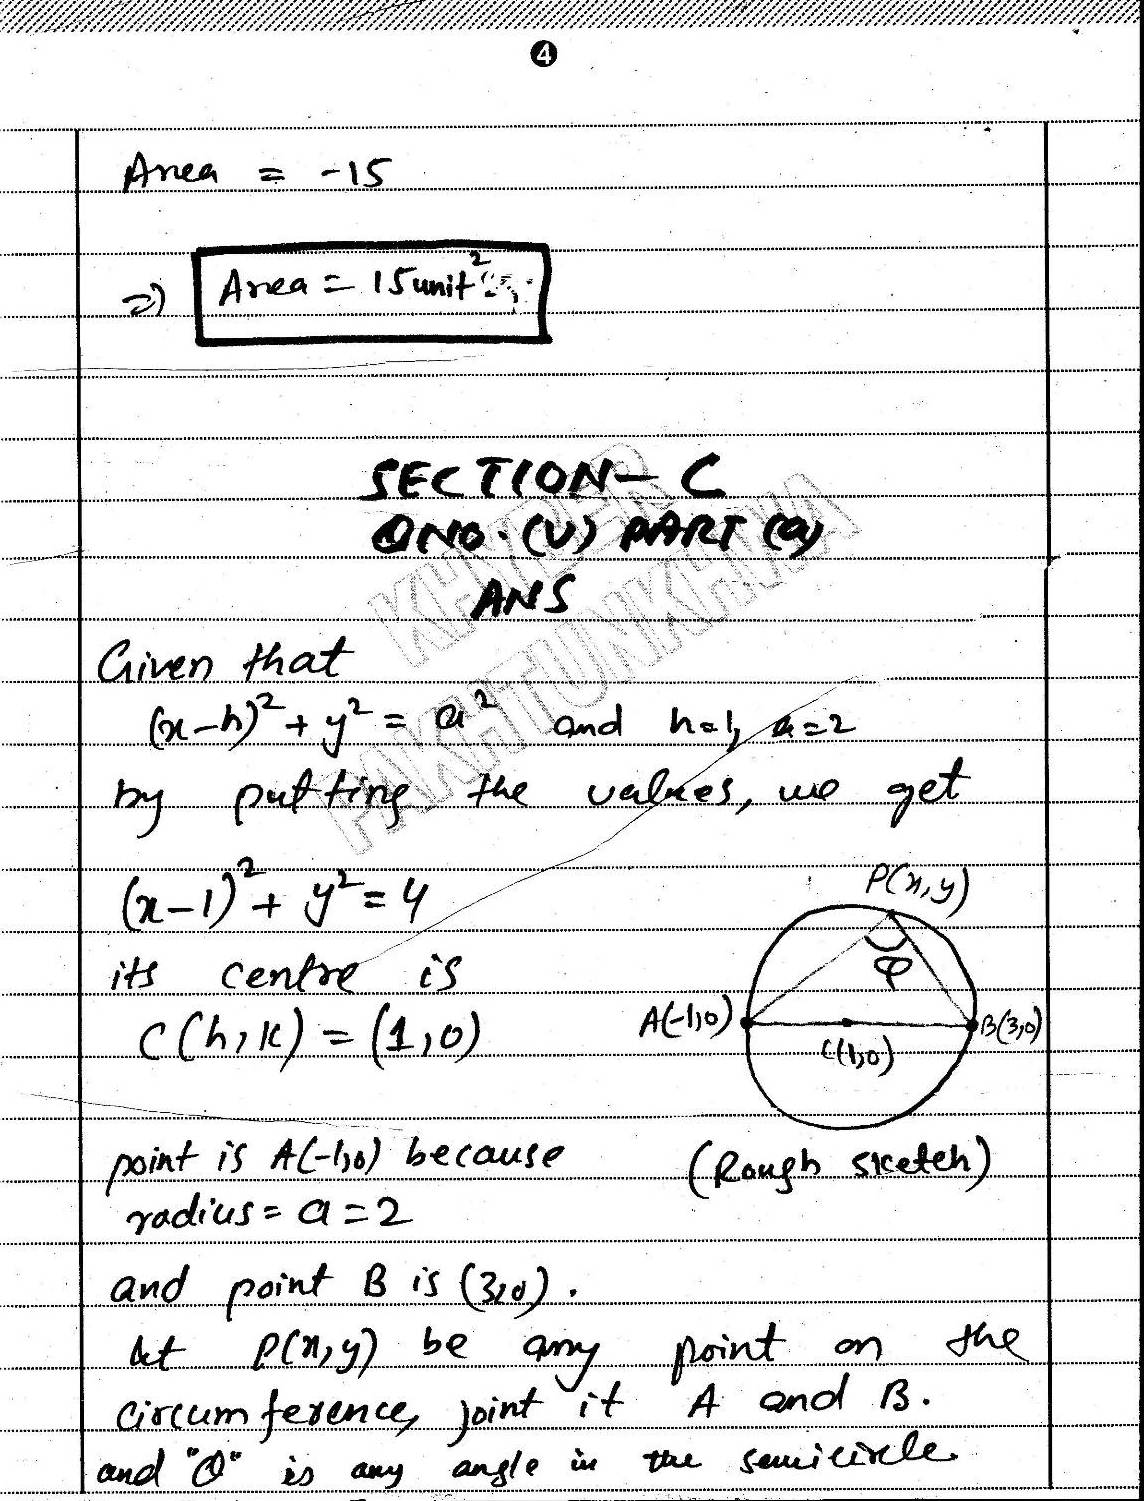 4
Area = -15
⇒) Area = 15 unit²
SECTION- C
QNO. (V) PART (a)
ANS
KHYBER
PAKHTUNKHWA
Given that
(x-h)² + y² = a² and h=1, a=2
by putting the values, we get
(x-1)² + y² = 4
its centre is
C(h,k) = (1,0)
P(x,y)
φ
A(-1,0)
B(3,0)
C(1,0)
(Rough sketch)
point is A(-1,0) because
radius = a = 2
and point B is (3,0).
let P(x,y) be any point on the
circumference, joint it A and B.
and "Q" is any angle in the semicircle.